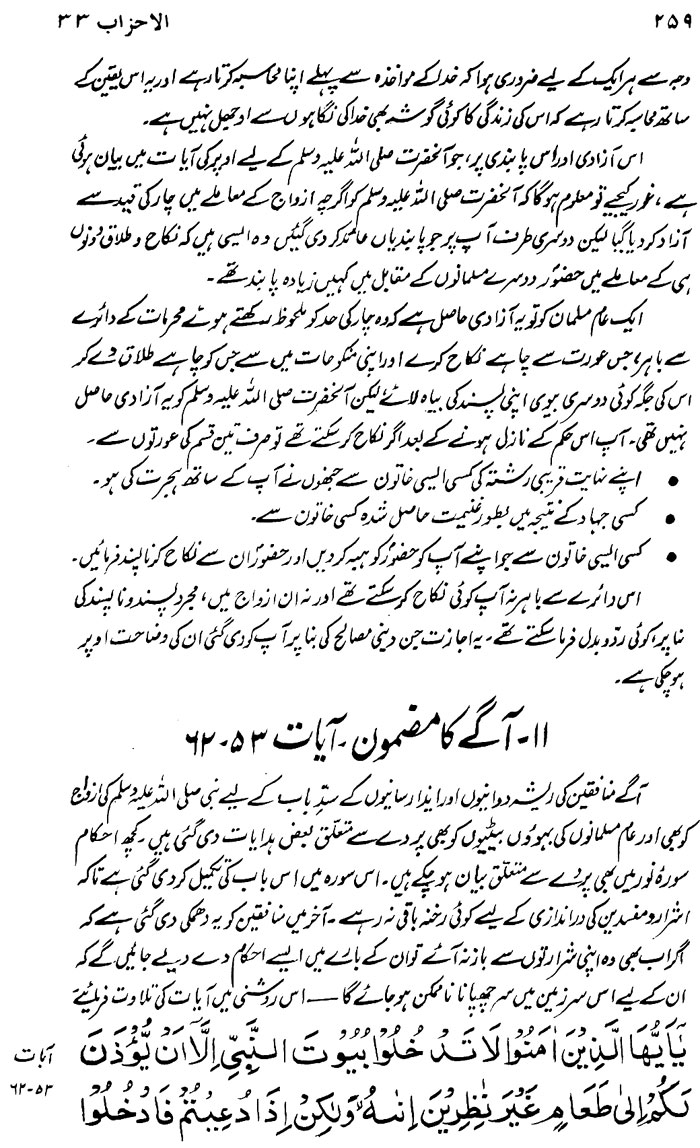 ۲۵۹ الاحزاب ۳۳
وجہ سے ہر ایک کے لیے ضروری ہوا کہ خدا کے مواخذہ سے پہلے اپنا محاسبہ کرتا رہے اور یہ اس یقین کے
ساتھ محاسبہ کرتا رہے کہ اس کی زندگی کا کوئی گوشہ بھی خدا کی نگاہوں سے اوجھل نہیں ہے۔
اس آزادی اور اس پابندی پر، جو آنحضرت صلی اللہ علیہ وسلم کے لیے اوپر کی آیات میں بیان ہوئی
ہے، غور کیجیے تو معلوم ہوگا کہ آنحضرت صلی اللہ علیہ وسلم کو اگرچہ ازواج کے معاملے میں چار کی قید سے
آزاد کر دیا گیا لیکن دوسری طرف آپ پر جو پابندیاں عائد کر دی گئیں وہ ایسی ہیں کہ نکاح و طلاق دونوں
ہی کے معاملے میں حضورؐ دوسرے مسلمانوں کے مقابل میں کہیں زیادہ پابند تھے۔
ایک عام مسلمان کو تو یہ آزادی حاصل ہے کہ وہ چار کی حد کو ملحوظ رکھتے ہوئے محرمات کے دائرے
سے باہر، جس عورت سے چاہے نکاح کرے اور اپنی منکوحات میں سے جس کو چاہے طلاق دے کر
اس کی جگہ کوئی دوسری بیوی اپنی پسند کی بیاہ لائے لیکن آنحضرت صلی اللہ علیہ وسلم کو یہ آزادی حاصل
نہیں تھی۔ آپ اس حکم کے نازل ہونے کے بعد اگر نکاح کر سکتے تھے تو صرف تین قسم کی عورتوں سے۔
• اپنے نہایت قریبی رشتہ کی کسی ایسی خاتون سے جنھوں نے آپ کے ساتھ ہجرت کی ہو۔
• کسی جہاد کے نتیجہ میں بطور غنیمت حاصل شدہ کسی خاتون سے۔
• کسی ایسی خاتون سے جو اپنے آپ کو حضورؐ کو ہبہ کر دیں اور حضورؐ ان سے نکاح کرنا پسند فرمائیں۔
اس دائرے سے باہر نہ آپ کوئی نکاح کر سکتے تھے اور نہ ان ازواج میں، مجرد پسند و ناپسند کی
بنا پر، کوئی ردّ و بدل فرما سکتے تھے۔ یہ اجازت جن دینی مصالح کی بنا پر آپ کو دی گئی ان کی وضاحت اوپر
ہو چکی ہے۔
۱۱۔ آگے کا مضمون ۔ آیات ۵۳-۶۲
آگے منافقین کی ریشہ دوانیوں اور ایذا رسانیوں کے سدّ باب کے لیے نبی صلی اللہ علیہ وسلم کی ازواج
کو بھی اور عام مسلمانوں کی بہوؤں بیٹیوں کو بھی پردے سے متعلق بعض ہدایات دی گئی ہیں۔ کچھ احکام
سورۂ نور میں بھی پردے سے متعلق بیان ہو چکے ہیں۔ اس سورہ میں اس باب کی تکمیل کر دی گئی ہے تاکہ
اشرار و مفسدین کی دراندازی کے لیے کوئی رخنہ باقی نہ رہے۔ آخر میں منافقین کو یہ دھمکی دی گئی ہے کہ
اگر اب بھی وہ اپنی شرارتوں سے باز نہ آئے تو ان کے بارے میں ایسے احکام دے دیے جائیں گے کہ
ان کے لیے اس سرزمین میں سر چھپانا ناممکن ہو جائے گا —— اس روشنی میں آیات کی تلاوت فرمائیے
يٰٓاَيُّهَا الَّذِيْنَ اٰمَنُوْا لَا تَدْخُلُوْا بُيُوْتَ النَّبِيِّ اِلَّآ اَنْ يُّؤْذَنَ
آیات
۵۳-۶۲
لَكُمْ اِلٰى طَعَامٍ غَيْرَ نٰظِرِيْنَ اِنٰىهُ ۙ وَلٰكِنْ اِذَا دُعِيْتُمْ فَادْخُلُوْا